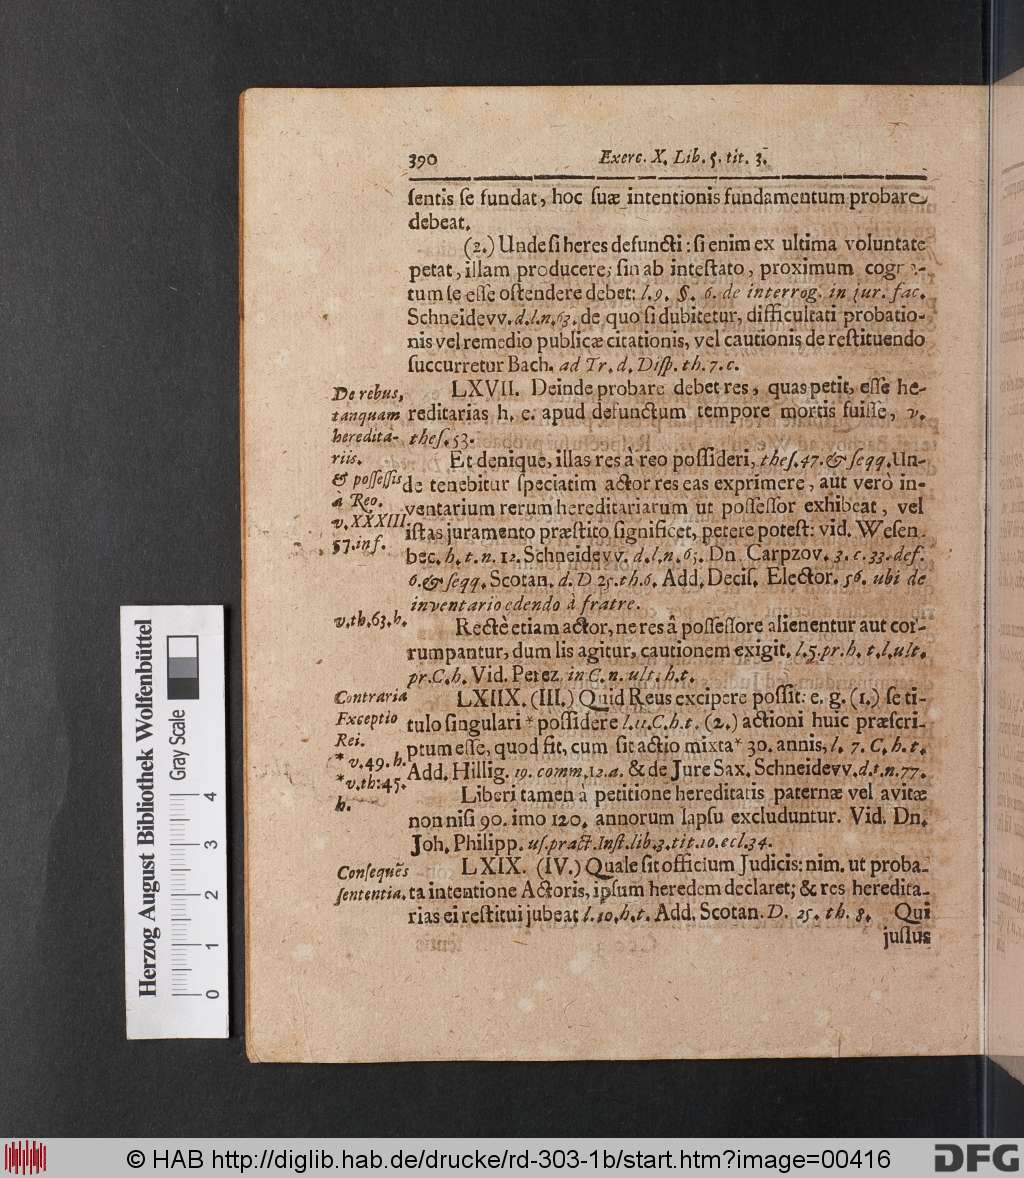 390 Exerc. X. Lib. 5. tit. 3.
ſentis ſe fundat, hoc ſuæ intentionis fundamentum probare
debeat.
(2.) Unde ſi heres defuncti: ſi enim ex ultima voluntate
petat, illam producere; ſin ab inteſtato, proximum
tum ſe eſſe oſtendere debet: l. 9. §. 6. de interrog. in jur. fac.
Schneidevv. d. l. n. 63. de quo ſi dubitetur, difficultati probatio-
nis vel remedio publicæ citationis, vel cautionis de reſtituendo
ſuccurretur Bach. ad Tr. d. Diſp. th. 7. c.
De rebus,
tanquam
heredita-
riis.
LXVII. Deinde probare debet res, quas petit, eſſe he-
reditarias h. e. apud defunctum tempore mortis fuiſſe, v.
theſ. 53.
& poſſeſſis
à Reo.
v. XXXIII
57. inf.
Et denique, illas res à reo poſſideri, theſ. 47. & ſeqq. Un-
de tenebitur ſpeciatim actor res eas exprimere, aut verò in-
ventarium rerum hereditariarum ut poſſeſſor exhibeat, vel
iſtas juramento præſtito ſignificet, petere poteſt: vid. Weſen
bec. h. t. n. 12. Schneidevv. d. l. n. 65. Dn. Carpzov. 3. c. 33. def.
6. & ſeqq. Scotan. d. D. 25. th. 6. Add. Deciſ. Elector. 56. ubi de
inventario edendo à fratre.
v. th. 63. h.
Rectè etiam actor, ne res â poſſeſſore alienentur aut cor-
rumpantur, dum lis agitur, cautionem exigit. l. 5. pr. h. t. l. ult.
pr. C. h. Vid. Perez. in C. n. ult. h. t.
Contraria
Exceptio
Rei.
* v. 49. h.
* v. th: 45.
h.
LXIIX. (III.) Quid Reus excipere poſſit: e. g. (1.) ſe ti-
tulo ſingulari * poſſidere l. 11. C. h. t. (2.) actioni huic præſcri-
ptum eſſe, quod fit, cum ſit actio mixta * 30. annis, l. 7. C. h. t.
Add. Hillig. 19. comm. 12. a. & de Jure Sax. Schneidevv. d. t. n. 77.
Liberi tamen à petitione hereditatis paternæ vel avitæ
non niſi 90. imo 120. annorum lapſu excluduntur. Vid. Dn.
Joh. Philipp. uſ. pract. Inſt. lib. 3. tit. 10. ecl. 34.
Conſequẽs
ſententia.
LXIX. (IV.) Quale ſit officium Judicis: nim. ut proba-
ta intentione Actoris, ipſum heredem declaret; & res heredita-
rias ei reſtitui jubeat l. 10. h. t. Add. Scotan. D. 25. th. 8. Qui
juſtus
Herzog August Bibliothek Wolfenbüttel
Gray Scale
0 1 2 3 4
© HAB http://diglib.hab.de/drucke/rd-303-1b/start.htm?image=00416
DFG